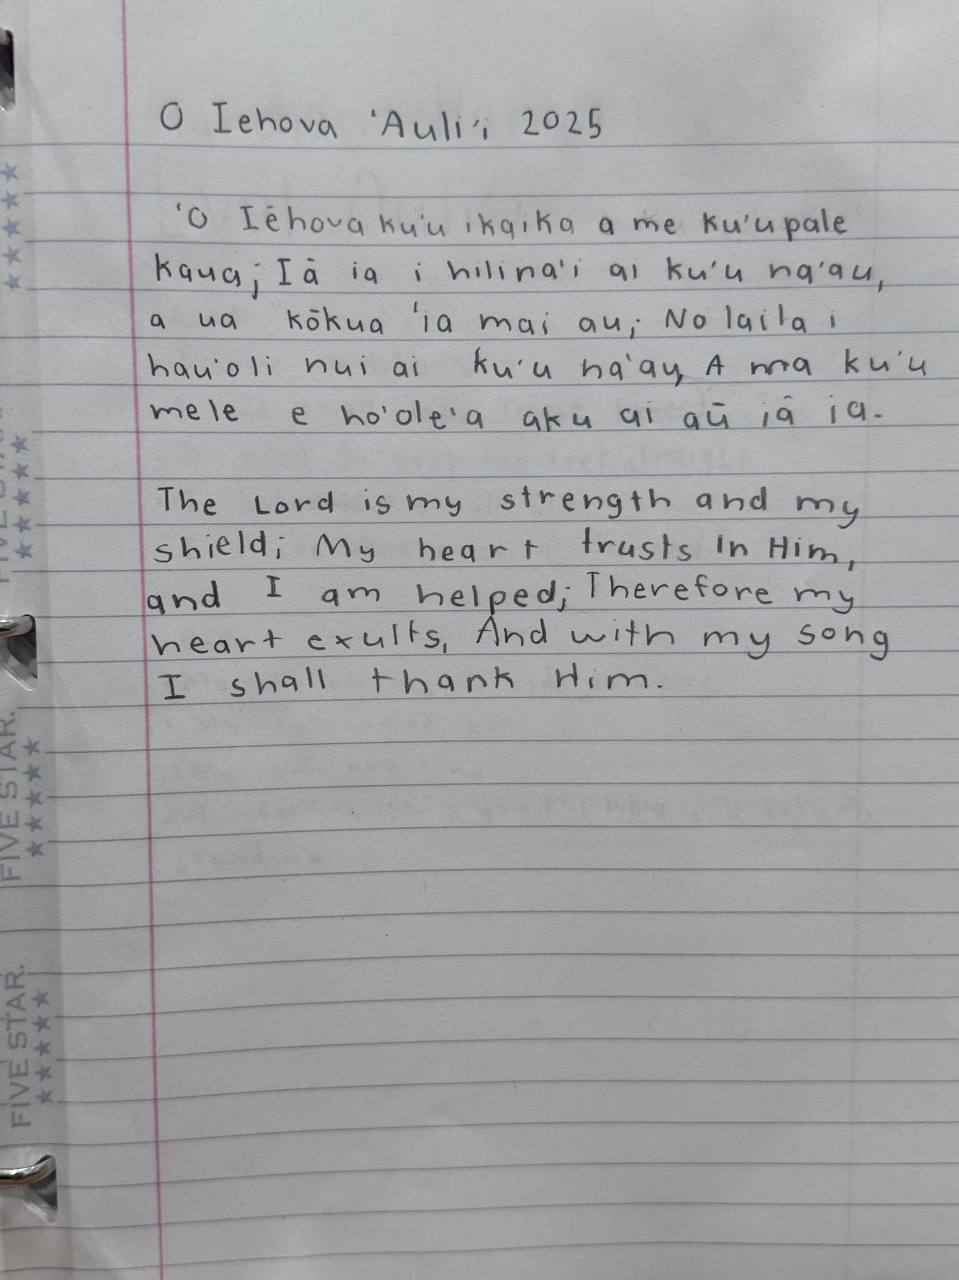 O Iehova 'Auli'i 2025
'O Iēhova ku'u ikaika a me ku'u pale
kaua; Iā ia i hilina'i ai ku'u na'au,
a ua kōkua 'ia mai au; No laila i
hau'oli nui ai ku'u na'au, A ma ku'u
mele e ho'ole'a aku ai aū iā ia.
The Lord is my strength and my
shield; My heart trusts in Him,
and I am helped; Therefore my
heart exults, And with my song
I shall thank Him.
FIVE STAR.
FIVE STAR.